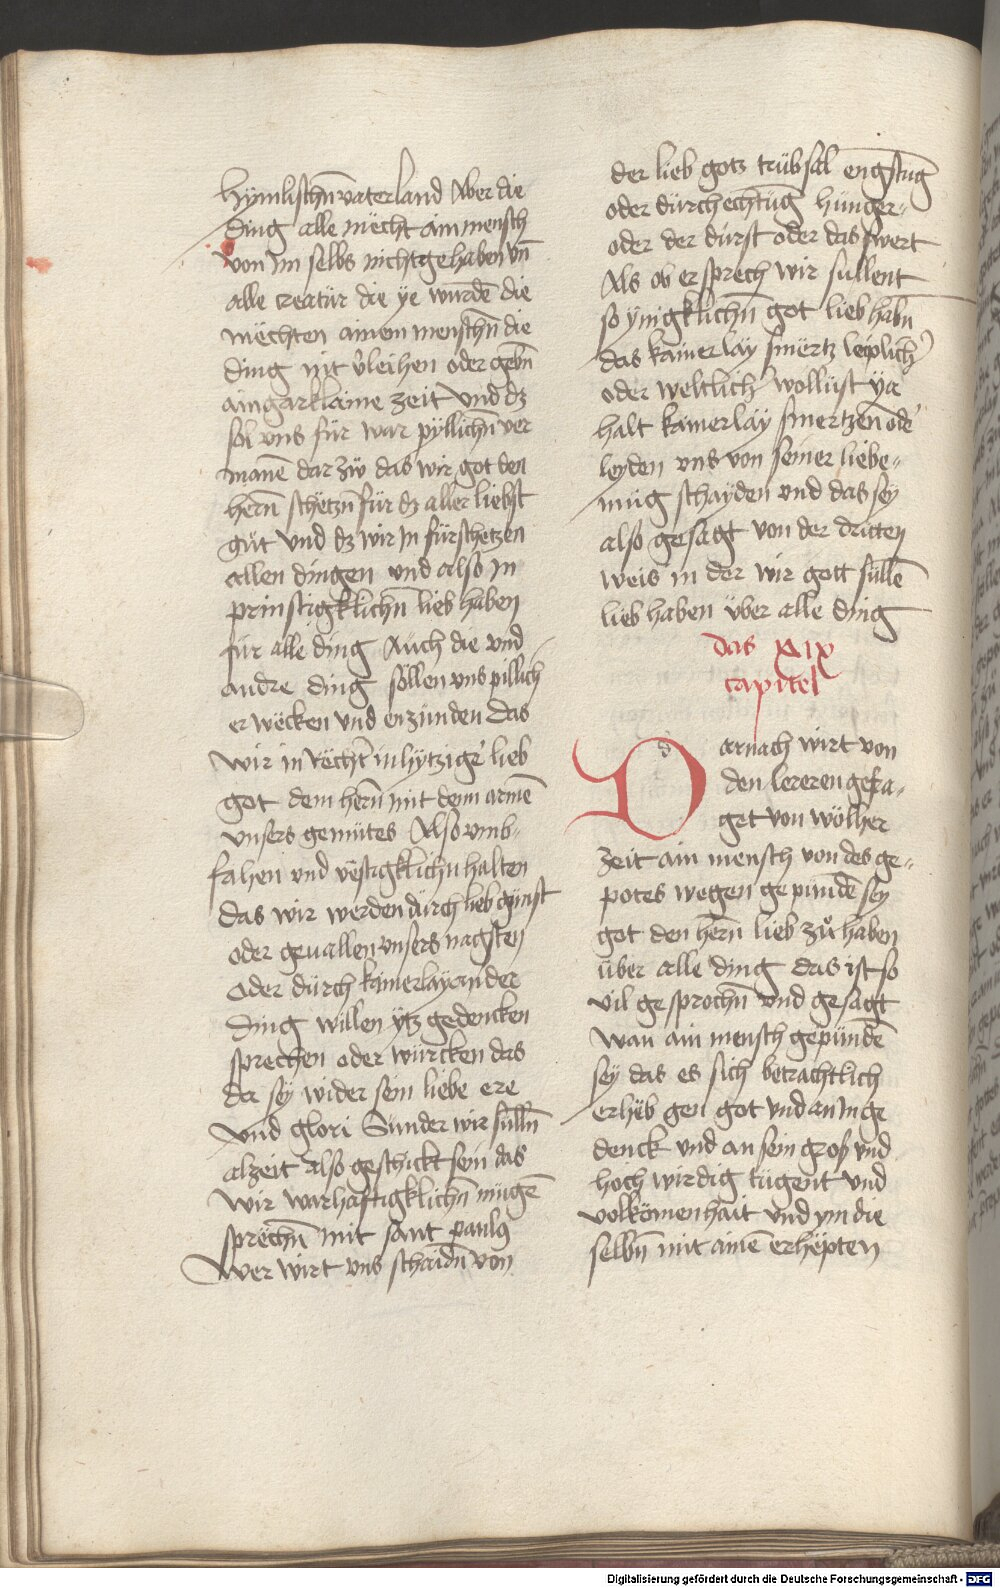 hymlischn̄ vaterland Aber die
ding alle mècht ain mensch
von im selbs nicht gehaben vn̄
alle creatür die ÿe wurdē die
mèchten ainem menschn̄ die
ding nit v̉leihen oder gebn̄
ain gar klaine zeit Vnd dz
sol vns für war pyllichn̄ ver
manē dar zw das wir got den
hern̄ schètzn̄ für dz aller liebst
gut Vnd dz wir in fürschetzen
allen dingen vnd also in
prinstigklichn̄ lieb haben
für alle ding Auch die vnd
andre ding söllen vns pillich
er wècken vnd enzünden das
wir in rècht̄ inhytzigẻ lieb
got dem hern̄ mit denn armē
vnsers gemütes Also vmb-
fahen vnd vèstigklichn halten
das wir werden durch lieb günst
oder geuallen vnsers nagsten
oder dürch kainerlay ander
ding willen ÿtz gedencken
sprechen oder würcken das
da sey wider sein liebe ere
vnd glori Sunder wir sulln̄
alzeit also geschickt sein das
wir warhaftigklichn̄ mügē
sprèchn̄ mit sant paulꝰ
Wer wirt vns schaidn̄ von
der lieb gotz trübsal engstūg
oder dürchechtūg hunger-
oder der durst oder das swert
Als ob er sprech wir sullent
so ynigklichn̄ got lieb habn̄
das kainerlay smèrtz leiplichˀ
oder weltlichˀ wollust ÿa
halt kainerlay smertzen odeˀ
leyden vns von seiner liebe-
müg schayden vnd das sey
also gesagt von der dritten
weis in der wir gott süllē
lieb haben über alle ding
das XIX
capitel
Darnach wirt von
den lereren gefra-
get von wölher
zeit ain mensch von des ge-
potes wegen gepundē sey
got den hern̄ lieb zů haben
über alle ding das ist so
vil gesprochn̄ vnd gesagt
wan ain mensch gepundē
sey das es sich betrachtlich
erhèb gen got vnd an in ge
denck vnd an sein groß vnd
hoch wirdig tugent vnd
volkömenhait vnd ym die
selbn̄ mit ainē erhèpten
Digitalisierung gefördert durch die Deutsche Forschungsgemeinschaft - DFG